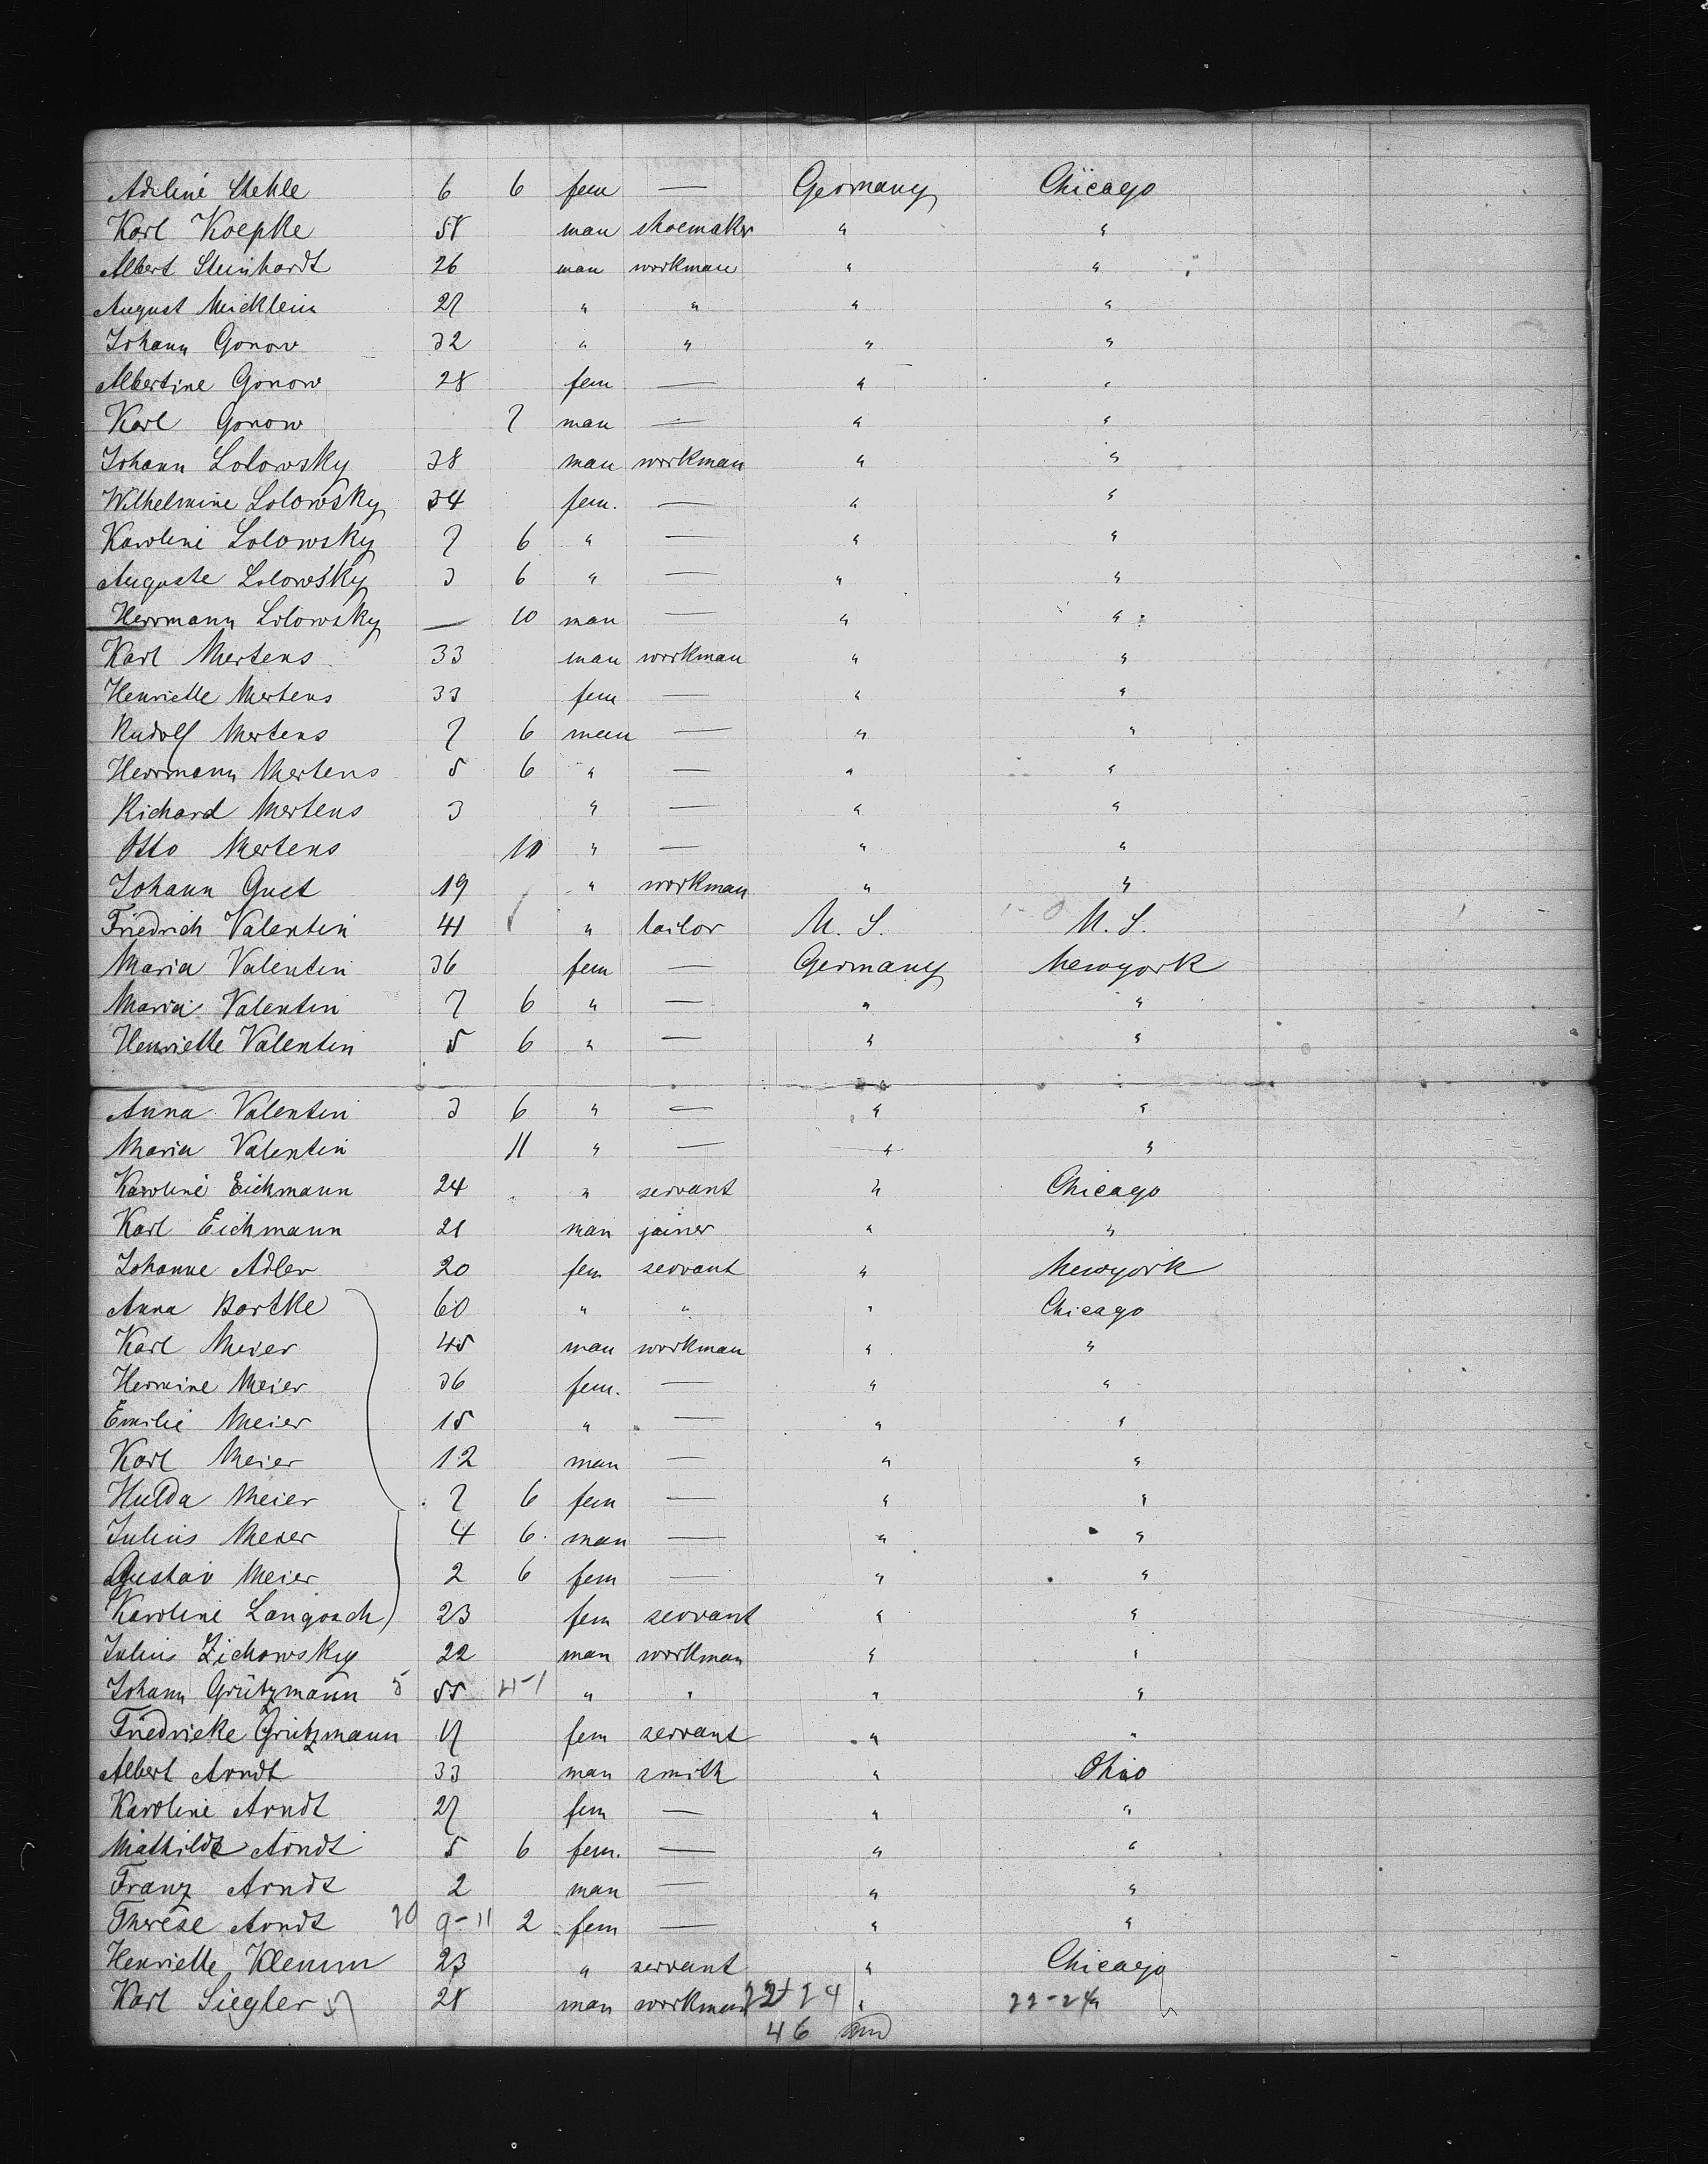 Adeline Stehle 6 6 fem — Germany Chicago
Karl Koepke 58 man shoemaker " "
Albert Steinhardt 26 man workman " "
August Micklein 27 " " " "
Johann Gonow 32 " " " "
Albertine Gonow 28 fem — " "
Karl Gonow 7 man — " "
Johann Lolowsky 38 man workman " "
Wilhelmine Lolowsky 34 fem. — " "
Karoline Lolowsky 7 6 " — " "
Auguste Lolowsky 3 6 " — " "
Herrmann Lolowsky — 10 man — " "
Karl Mertens 33 man workman " "
Henriette Mertens 33 fem — " "
Rudolf Mertens 7 6 man — " "
Herrmann Mertens 5 6 " — " "
Richard Mertens 3 " — " "
Otto Mertens 10 " — " "
Johann Guct 19 " workman " "
Friedrich Valentin 41 " tailor U. S. U. S.
Maria Valentin 36 fem — Germany Newyork
Maria Valentin 7 6 " — " "
Henriette Valentin 5 6 " — " "
Anna Valentin 3 6 " — " "
Maria Valentin 11 " — " "
Karoline Eichmann 24 " servant " Chicago
Karl Eichmann 21 man joiner " "
Johanne Adler 20 fem servant " Newyork
Anna Bartke 60 " " " Chicago
Karl Meier 45 man workman " "
Hermine Meier 36 fem. — " "
Emilie Meier 15 " — " "
Karl Meier 12 man — " "
Hulda Meier 7 6 fem — " "
Julius Meier 4 6 man — " "
Gustav Meier 2 6 fem — " "
Karoline Langoach 23 fem servant " "
Julius Zichowsky 22 man workman " "
Johann Grützmann 5 55 4-1 " " " "
Friedricke Grützmann 17 fem servant " "
Albert Arndt 33 man smith " Ohio
Karoline Arndt 27 fem — " "
Mathilde Arndt 5 6 fem. — " "
Franz Arndt 2 man — " "
Therese Arndt 20 9-11 2 fem — " "
Henriette Klemm 23 " servant " Chicago
Karl Siegler 28 man workman 22 24 " 22-24
46